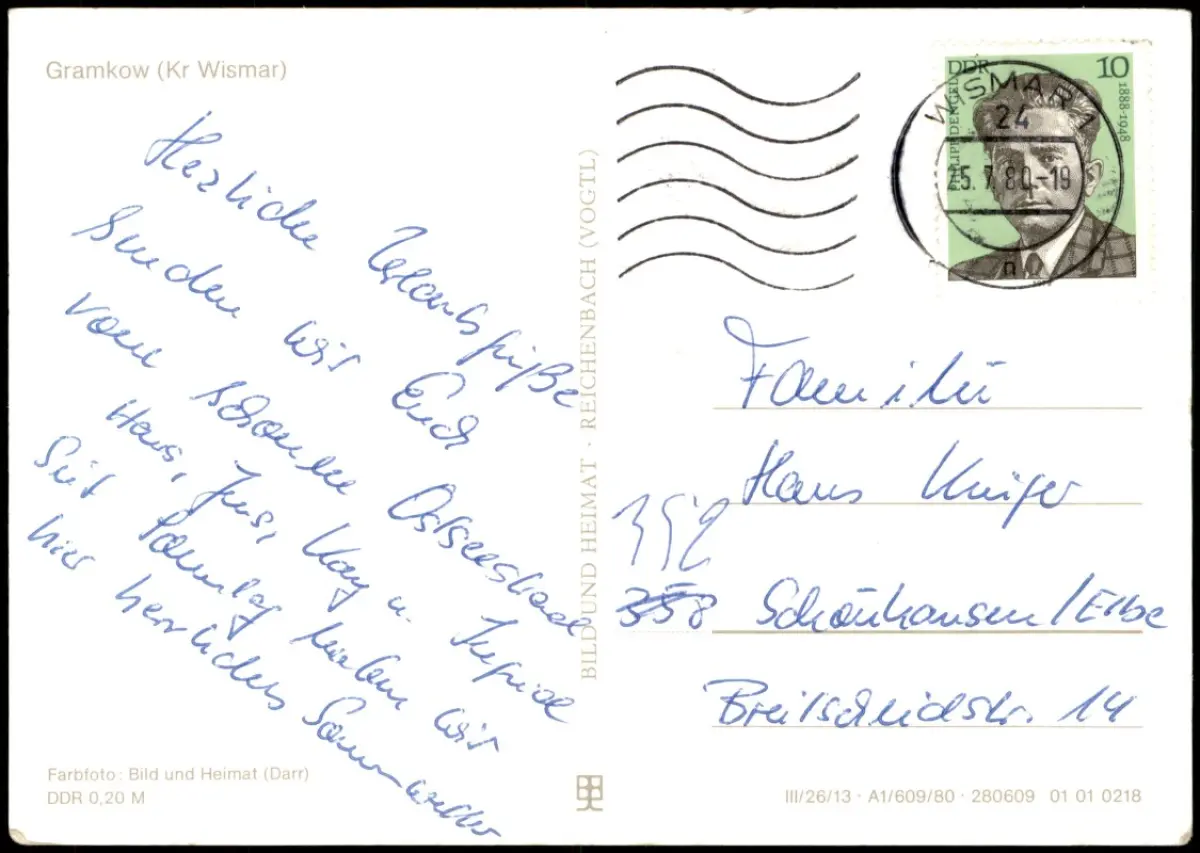 Gramkow (Kr Wismar)
Herzliche Urlaubsgrüße
senden wir Euch
vom schönen Ostseestrand
Hans, Jens, Kay u. Ingrid
Seit Sonntag haben wir
hier herrliches Sommerwetter
Farbfoto: Bild und Heimat (Darr)
DDR 0,20 M
BILD UND HEIMAT · REICHENBACH (VOGTL)
DDR 10
1888-1948
WISMAR 1
24
5.7.80-19
Familie
Hans Krüger
352
358 Schönhausen/Elbe
Breitscheidstr. 14
III/26/13 · A1/609/80 · 280609 01 01 0218